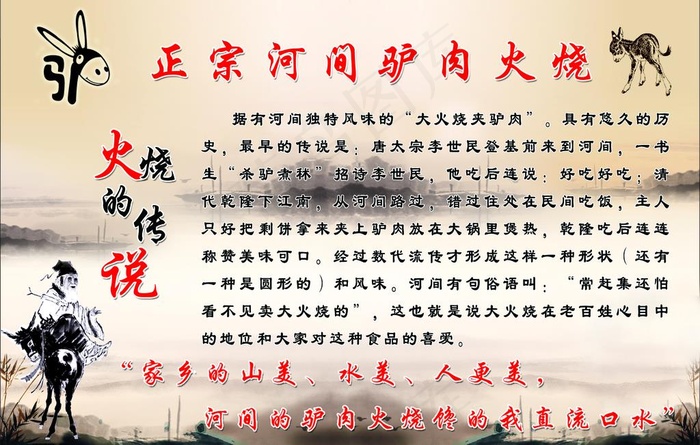 正宗河间驴肉火烧
驴
火烧
的传
说
据有河间独特风味的“大火烧夹驴肉”。具有悠久的历
史，最早的传说是：唐太宗李世民登基前来到河间，一书
生“杀驴煮秫”招诗李世民，他吃后连说：好吃好吃；清
代乾隆下江南，从河间路过，错过住处在民间吃饭，主人
只好把剩饼拿来夹上驴肉放在大锅里煲热，乾隆吃后连连
称赞美味可口。经过数代流传才形成这样一种形状（还有
一种是圆形的）和风味。河间有句俗语叫：“常赶集还怕
看不见卖大火烧的”，这也就是说大火烧在老百姓心目中
的地位和大家对这种食品的喜爱。
“家乡的山美、水美、人更美，
河间的驴肉火烧馋的我直流口水”